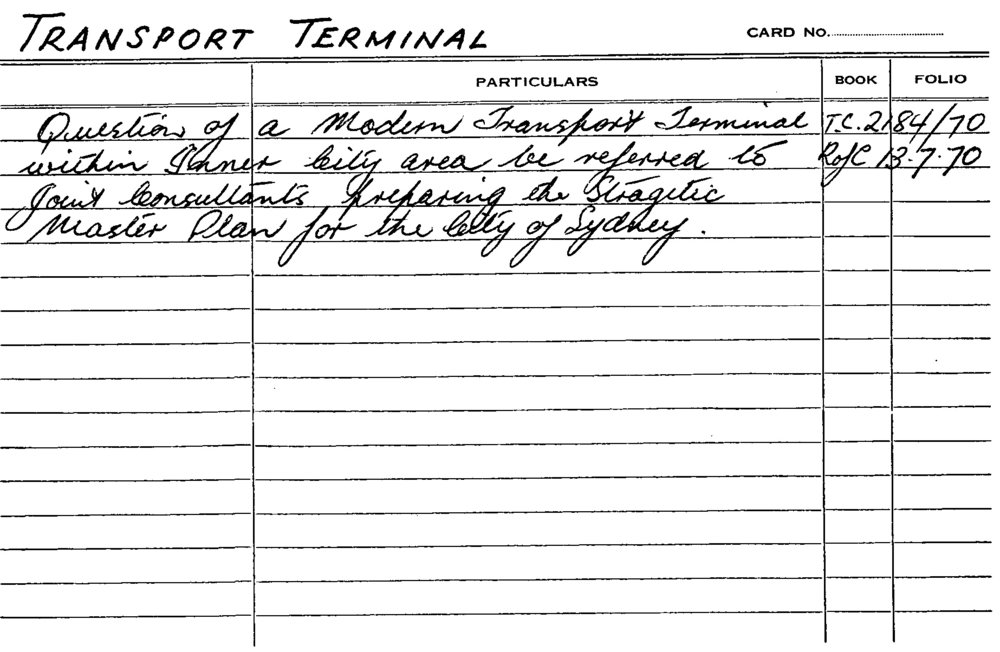 TRANSPORT TERMINAL CARD No.
PARTICULARS BOOK FOLIO
Question of a Modern Transport Terminal T.C. 2184/70
within Inner City area be referred to RofC 13.7.70
Joint Consultants preparing the Stragetic
Master Plan for the City of Sydney.